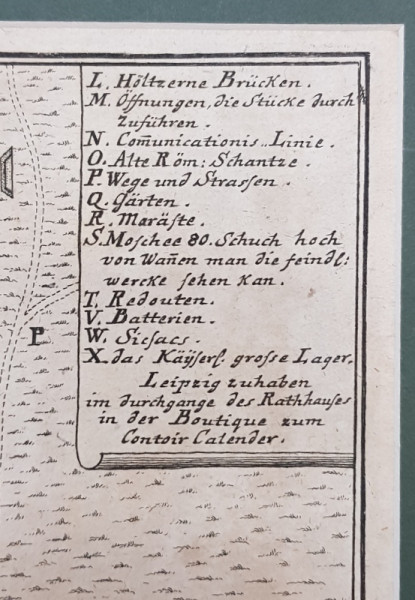 L. Höltzerne Brücken.
M. Öffnungen, die Stücke durch
zuführen.
N. Com̅unicationis Linie.
O. Alte Röm: Schantze.
P. Wege und Strassen.
Q. Gärten.
R. Moräste.
S. Moschee 80. Schuch hoch
von Wan̅en man die feindl:
wercke sehen kan.
T. Redouten.
V. Batterien.
P
W. Sicsacs.
X. das Käyserl. grosse Lager.
Leipzig zuhaben
im durchgange des Rathhauses
in der Boutique zum
Contoir Calender.